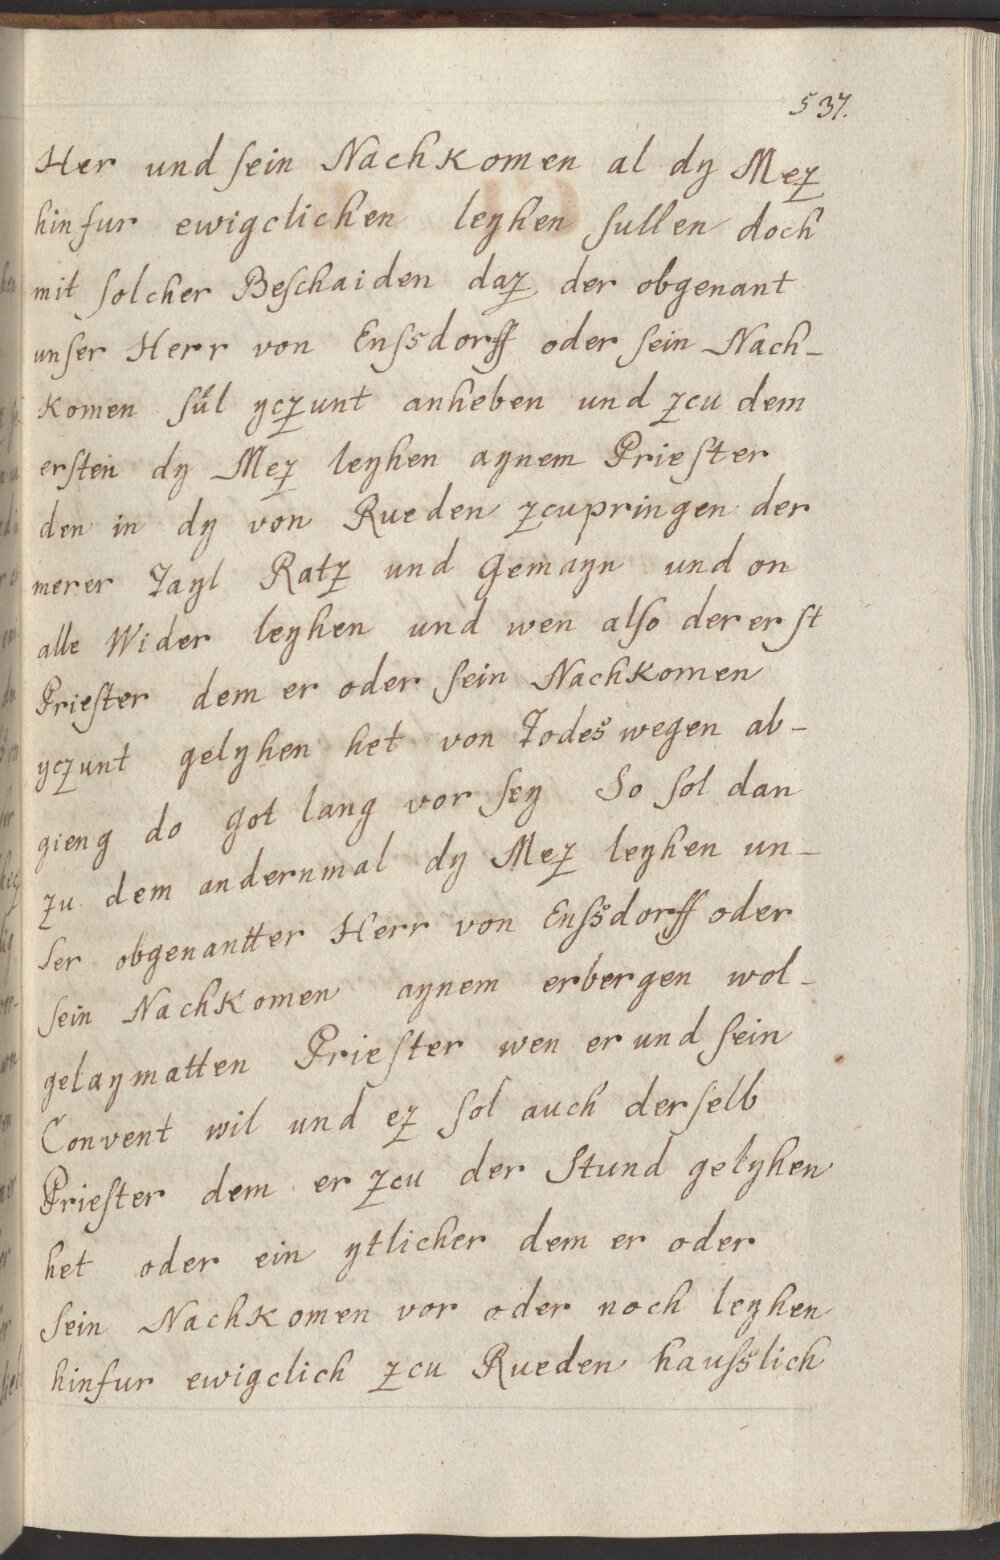 537.
Her und ſein Nachkomen al dy Mez
hinfur ewigclichen leyhen ſullen doch
mit ſolcher Beſchaiden daz der obgenant
unſer Herr von Enſsdorff oder ſein Nach-
komen ſül yczunt anheben und zcu dem
erſten dy Mez leyhen aynem Prieſter
den in dy von Rueden zcupringen der
merer Tayl Ratz und Gemayn und on
alle Wider leyhen und wen alſo der erſt
Prieſter dem er oder ſein Nachkomen
yczunt gelyhen het von Todes wegen ab-
gieng do Got lang vor ſey So ſol dan
zu dem andernmal dy Mez leyhen un-
ſer obgenantter Herr von Enſsdorff oder
ſein Nachkomen aynem erbergen wol-
gelaymatten Prieſter wen er und ſein
Convent wil und ez ſol auch derſelb
Prieſter dem er zcu der Stund gelyhen
het oder ein ytlicher dem er oder
ſein Nachkomen vor oder noch leyhen
hinfur ewigclich zcu Rueden hauſslich